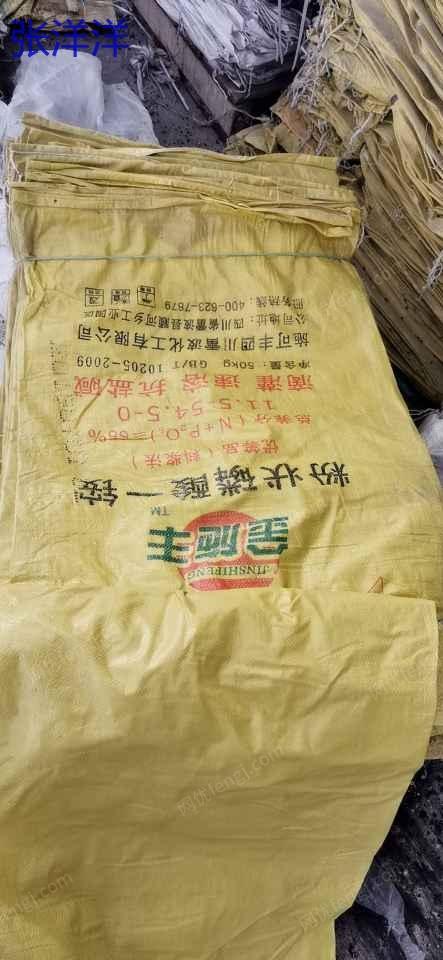 张洋洋
金施丰
JINSHIFENG
TM
粉状磷酸一铵
优等品（料浆法）
总养分（N+P₂O₅）≥66%
11.5-54.5-0
滴灌 速溶 抗盐碱
净含量：50kg GB/T 10205-2009
施可丰四川雷波化工有限公司
公司地址：四川省雷波县顺河乡工业园区
服务热线：400-623-7879